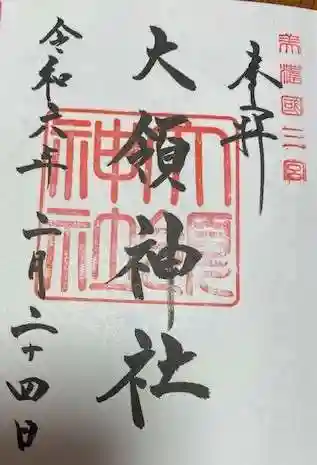 美濃國二宮
奉拝
大領神社
大領
神社
令和六年 二月二十四日